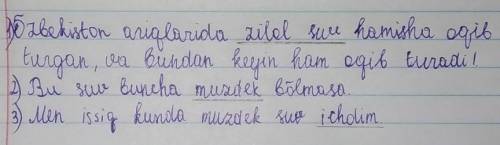 1) Õzbekiston ariqlarida zilol suv hamisha oqib
turgan, va bundan keyin ham oqib turadi!
2) Bu suv buncha muzdek bõlmasa.
3) Men issiq kunda muzdek suv ichdim.